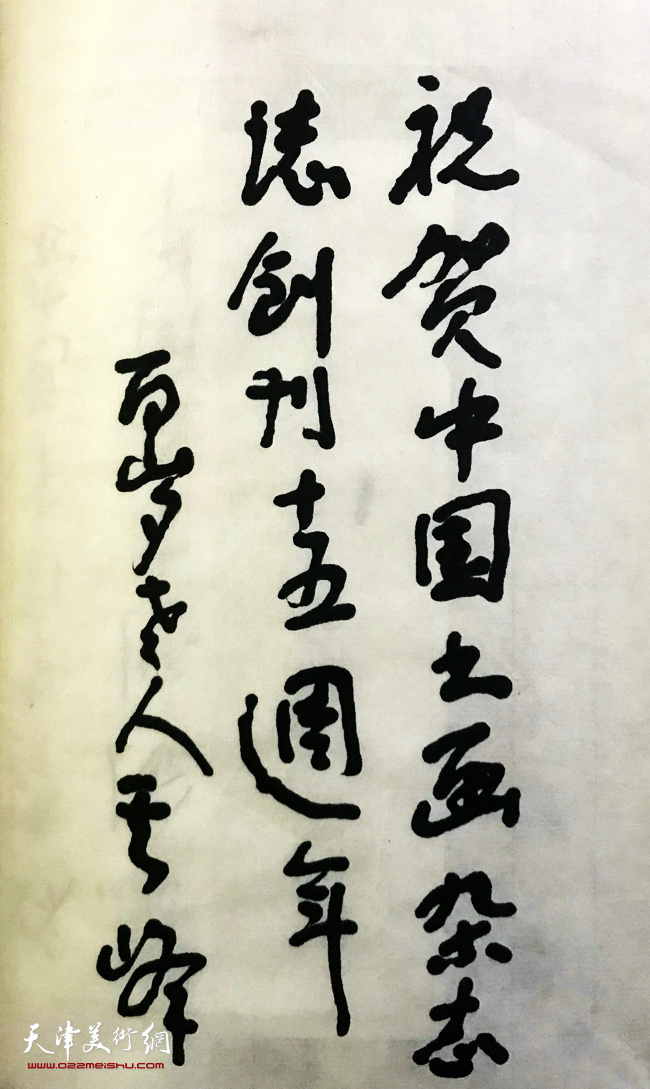 祝贺中国书画杂志
誌创刊十五週年
百岁老人其峰
天津美術網
www.022meishu.com